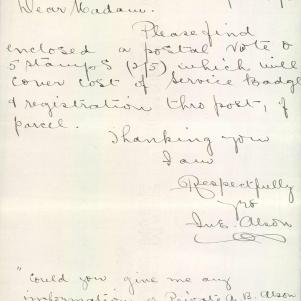 Dear Madam.
Please find
enclosed a postal vote &
5 stamps (2/5) which will
cover cost of Service Badge
& registration thro post, of
parcel.
Thanking you
I am
Respectfully
yrs
Alson
"Could you give me any
information of Private A. B. Alson